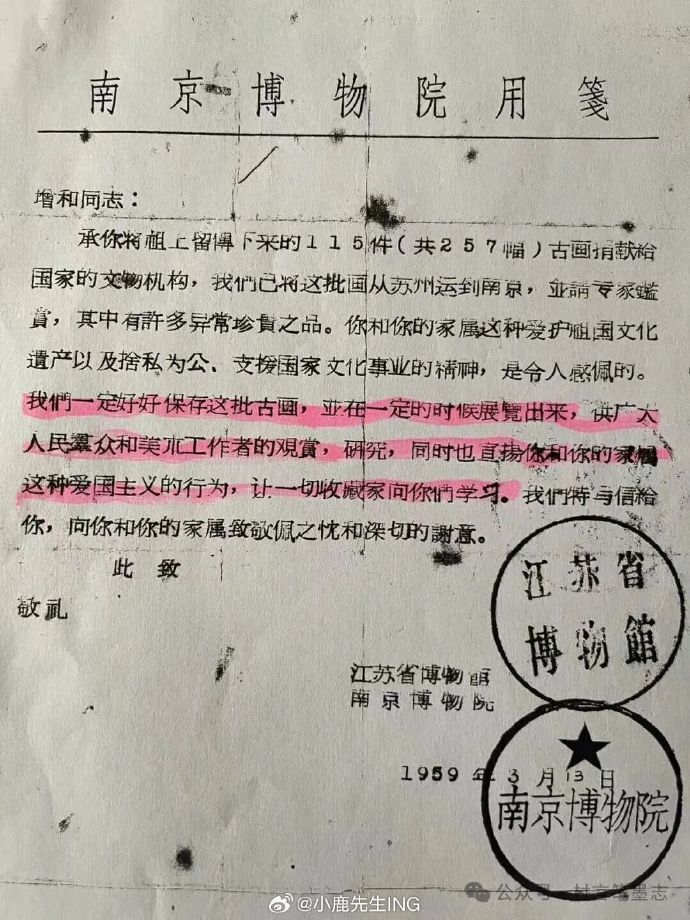 南京博物院用箋
增和同志：
承你将祖上留傳下来的115件(共257幅)古画捐献給
国家的文物机构，我們已将这批画从苏州运到南京，並請专家鑑
賞，其中有許多异常珍貴之品。你和你的家属这种爱护祖国文化
遺产以及捨私为公、支援国家文化事业的精神，是令人感佩的。
我們一定好好保存这批古画，並在一定的时候展覽出来，供广大
人民羣众和美朮工作者的观賞，研究，同时也直揚你和你的家属
这种爱国主义的行为，让一切收藏家向你們学习。我們特与信給
你，向你和你的家属致敬佩之忱和深切的謝意。
此致
敬礼
江苏省博物館
南京博物院
1959年3月13日
江苏省
博物館
南京博物院
@小鹿先生ING
公众号
笔墨志